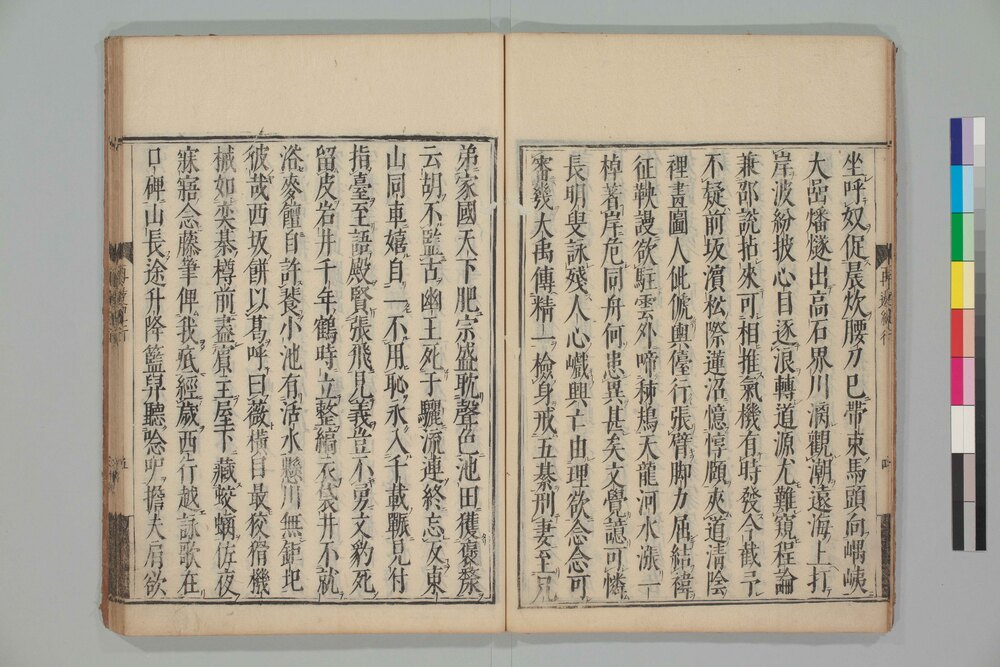 坐呼奴促晨炊腰刀已帶束馬頭向嵎峓
大嵒燔燧出高石界川滴觀潮遠海上打
岸波紛披心目逐浪轉道源尤難窺程論
兼邵説拈來可相推氣機有時發今截予
不疑前坂濱松際蓮沼憶惇頤夾道清陰
裡畫圖人佌傂輿儓行張臂脚力屆結褘
征軟謾欲駐雲外啼秭鴂天龍河水漲一
棹著岸危同舟何患異甚矣文覺諺可憐
長明叟詠殘人心巇興亡由理欲念念可
審幾大禹傳精一檢身戒五綦刑妻至兄
弟家國天下肥宗盛耽聲色池田獲褒嫠
云胡不監古幽王死于驪流連終忘反東
山同車嬉自一不用恥永入千載覈見付
指臺至語殿賢張飛見義豈不勇文豹死
留皮岩井千年鶴時立整縞衣袋井不就
浴麥饘自許養小池有活水懸川無鉛圯
彼哉西坂餅以葛呼曰薇橫目最狡猾機
械如奕棊樽前盡賓主屋下藏蛟螭佐夜
寐寤念藤筆俾我底經歲西行越詠歌在
口碑山長途升降籃舁聽唸吚擔夫肩欲